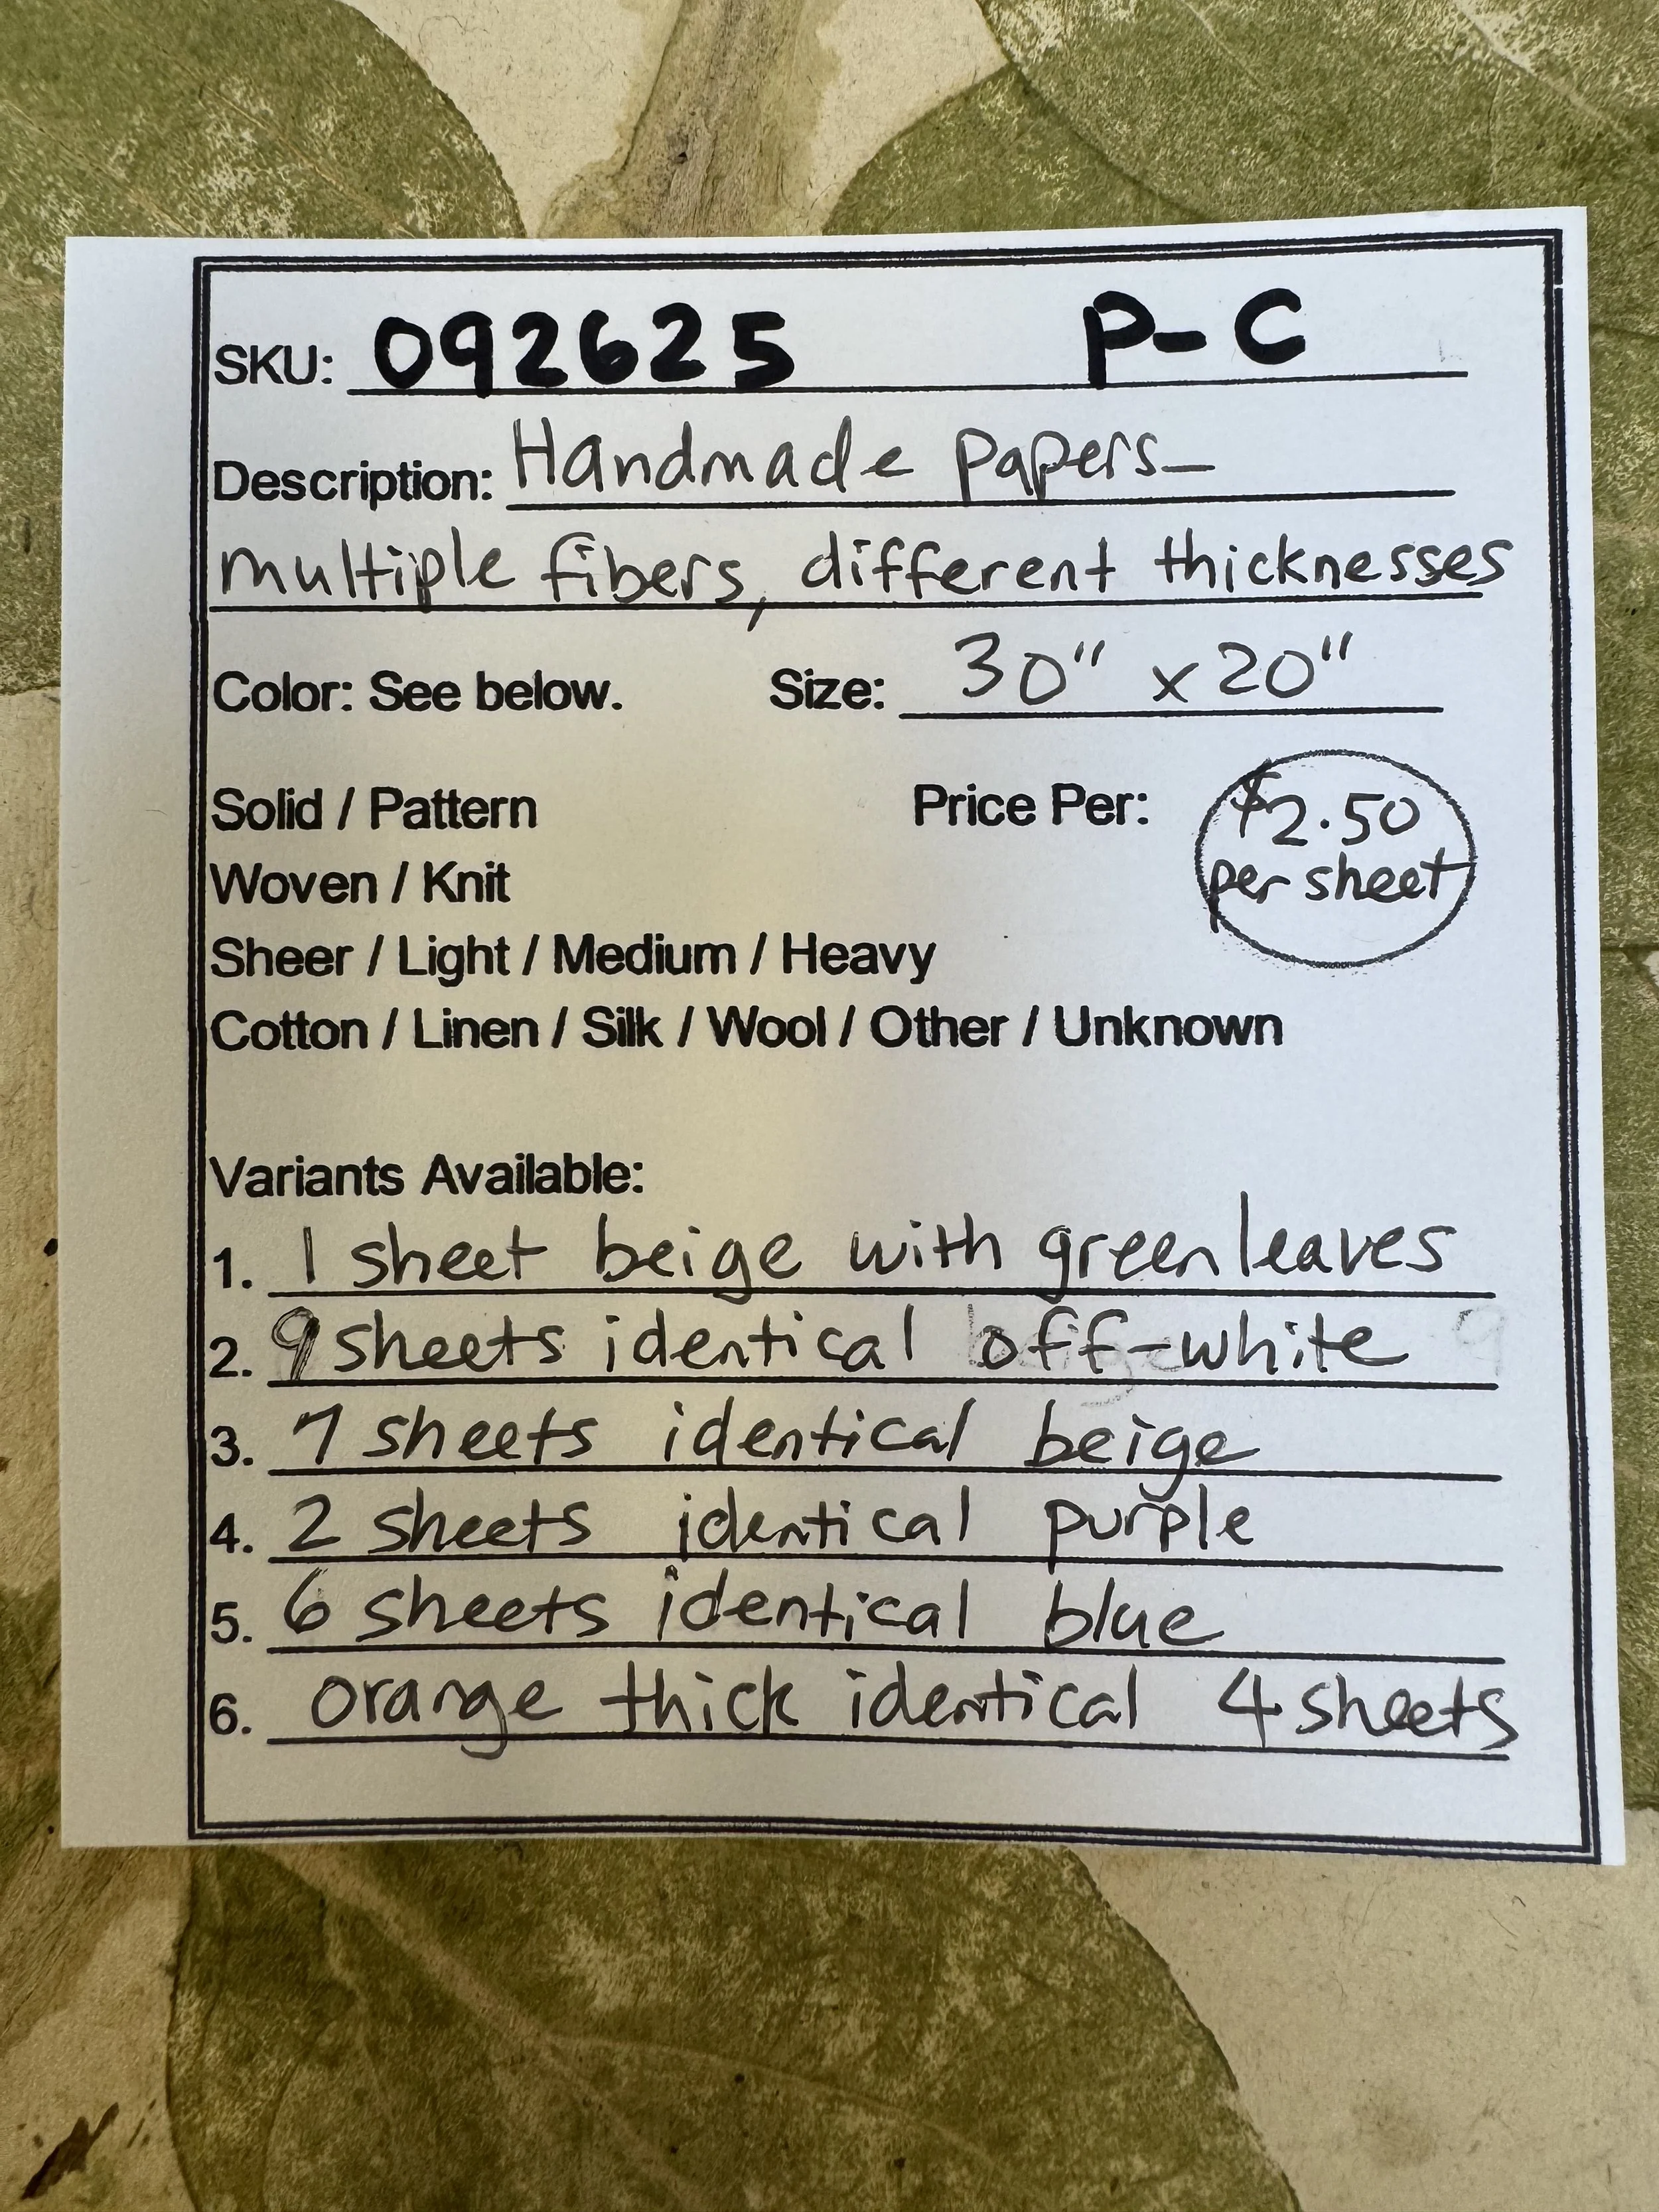 SKU: 092625 P-C
Description: Handmade papers-
multiple fibers, different thicknesses
Color: See below. Size: 30" x 20"
Solid / Pattern Price Per: $2.50
Woven / Knit per sheet
Sheer / Light / Medium / Heavy
Cotton / Linen / Silk / Wool / Other / Unknown
Variants Available:
1. 1 sheet beige with green leaves
2. 9 sheets identical off-white 9
3. 7 sheets identical beige
4. 2 sheets identical purple
5. 6 sheets identical blue
6. orange thick identical 4 sheets